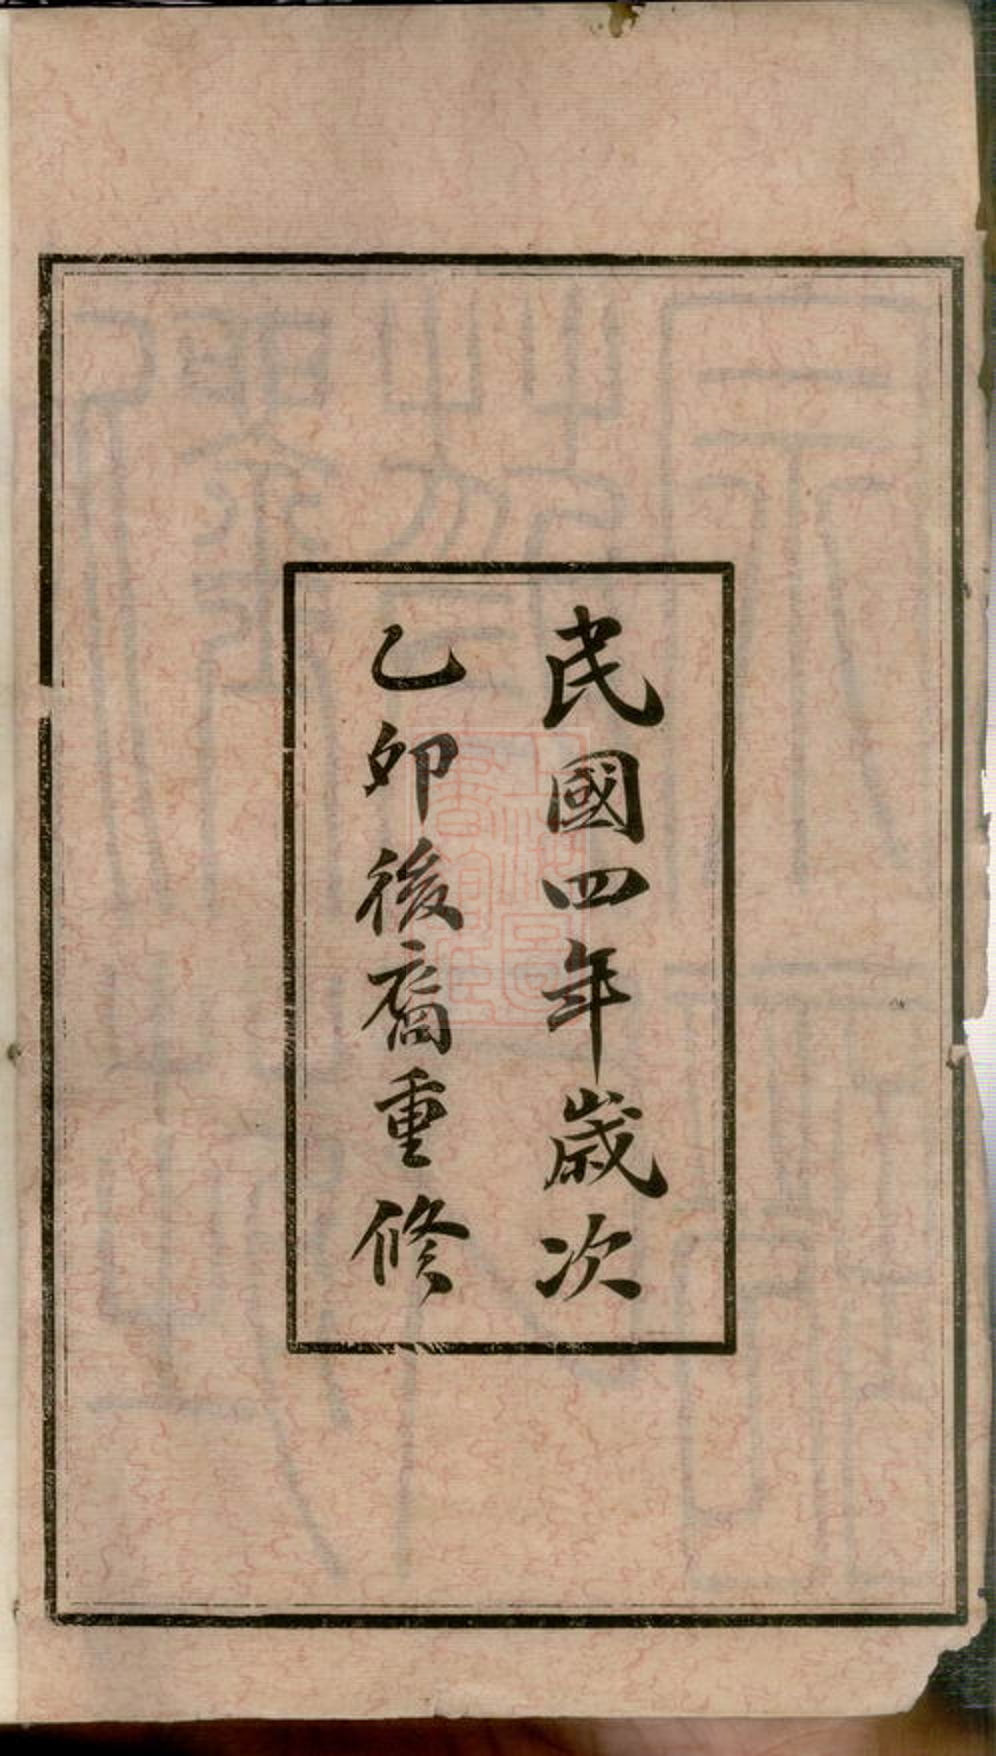 民國四年歲次
乙卯後裔重修